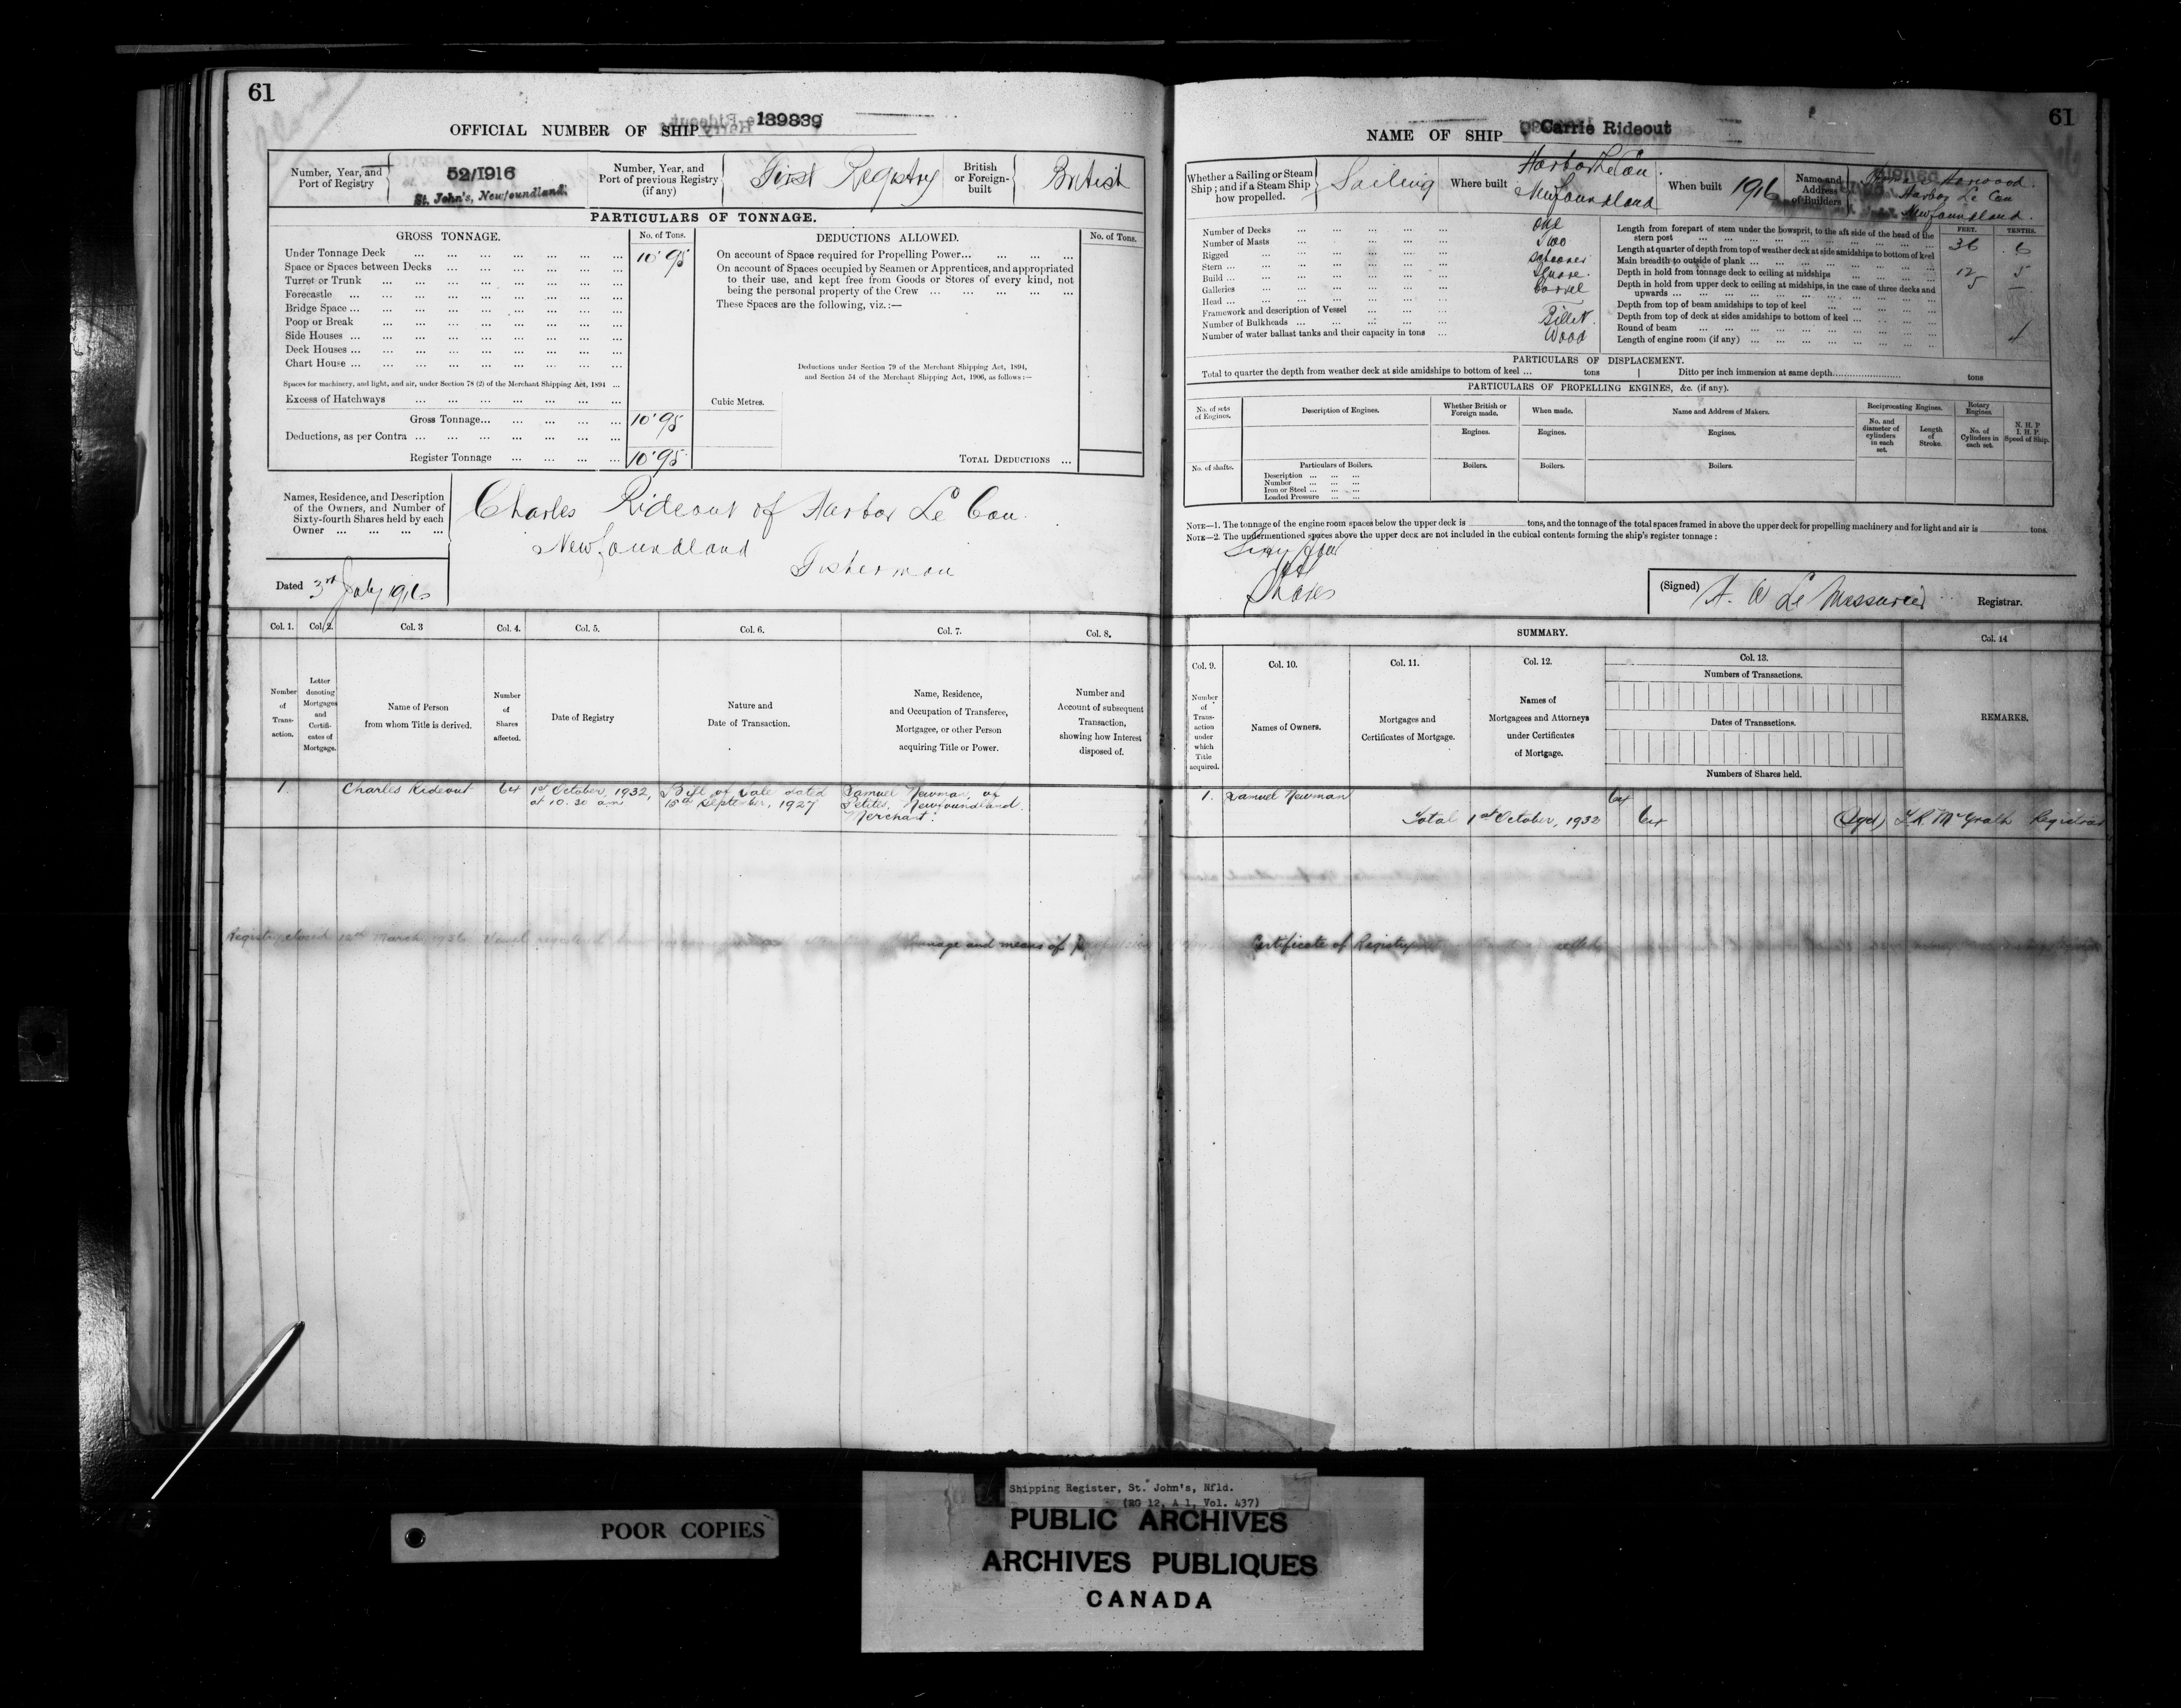 61
OFFICIAL NUMBER OF SHIP 139839
Number, Year, and Port of Registry
52/1916
St. John's, Newfoundland.
Number, Year, and Port of previous Registry (if any)
First Registry
British or Foreign-built
British
PARTICULARS OF TONNAGE.
GROSS TONNAGE.
No. of Tons.
Under Tonnage Deck ... 10.95
Space or Spaces between Decks ...
Turret or Trunk ...
Forecastle ...
Bridge Space ...
Poop or Break ...
Side Houses ...
Deck Houses ...
Chart House ...
Spaces for machinery, and light, and air, under Section 78 (2) of the Merchant Shipping Act, 1894 ...
Excess of Hatchways ...
Gross Tonnage... 10.95
Deductions, as per Contra ...
Register Tonnage ... 10.95
DEDUCTIONS ALLOWED.
No. of Tons.
On account of Space required for Propelling Power...
On account of Spaces occupied by Seamen or Apprentices, and appropriated
to their use, and kept free from Goods or Stores of every kind, not
being the personal property of the Crew ...
These Spaces are the following, viz.:—
Deductions under Section 79 of the Merchant Shipping Act, 1894,
and Section 54 of the Merchant Shipping Act, 1906, as follows:—
Cubic Metres.
TOTAL DEDUCTIONS ...
Names, Residence, and Description
of the Owners, and Number of
Sixty-fourth Shares held by each
Owner ...
Charles Rideout of Harbor Le Cou
Newfoundland
Fisherman
Dated 3rd July 1916
Col. 1.
Col. 2.
Col. 3
Col. 4.
Col. 5.
Col. 6.
Col. 7.
Col. 8.
Number of Trans-action.
Letter denoting Mortgages and Certifi-cates of Mortgage.
Name of Person from whom Title is derived.
Number of Shares affected.
Date of Registry
Nature and Date of Transaction.
Name, Residence, and Occupation of Transferee, Mortgagee, or other Person acquiring Title or Power.
Number and Account of subsequent Transaction, showing how Interest disposed of.
1.
Charles Rideout
64
1st October, 1932, at 10.30 am
Bill of Sale dated 15th September, 1927
Samuel Newman, of Petites, Newfoundland. Merchant.
Registry closed 12th March 1936. Vessel registered
tonnage and means of
61
NAME OF SHIP Carrie Rideout
Whether a Sailing or Steam Ship; and if a Steam Ship how propelled.
Sailing
Where built
Harbor Le Cou.
Newfoundland
When built
1916
Name and Address of Builders
Harwood.
Harbor Le Cou
Newfoundland.
Number of Decks ... One
Number of Masts ... Two
Rigged ... Schooner
Stern ... Square.
Build ... Carvel
Galleries ...
Head ... Billet.
Framework and description of Vessel ... Wood
Number of Bulkheads ...
Number of water ballast tanks and their capacity in tons ...
FEET. TENTHS.
Length from forepart of stem under the bowsprit, to the aft side of the head of the
stern post ... 36 .6
Length at quarter of depth from top of weather deck at side amidships to bottom of keel
Main breadth to outside of plank ... 12 5
Depth in hold from tonnage deck to ceiling at midships ... 5 —
Depth in hold from upper deck to ceiling at midships, in the case of three decks and
upwards ...
Depth from top of beam amidships to top of keel ...
Depth from top of deck at sides amidships to bottom of keel ...
Round of beam ... 4
Length of engine room (if any) ...
PARTICULARS OF DISPLACEMENT.
Total to quarter the depth from weather deck at side amidships to bottom of keel ... tons
Ditto per inch immersion at same depth... tons
PARTICULARS OF PROPELLING ENGINES, &c. (if any).
No. of sets of Engines.
Description of Engines.
Whether British or Foreign made.
When made.
Name and Address of Makers.
Reciprocating Engines.
Rotary Engines.
N. H. P.
I. H. P.
Speed of Ship.
No. and diameter of cylinders in each set.
Length of Stroke.
No. of Cylinders in each set.
Engines.
Engines.
Engines.
No. of shafts.
Particulars of Boilers.
Boilers.
Boilers.
Boilers.
Description ...
Number ...
Iron or Steel ...
Loaded Pressure ...
NOTE—1. The tonnage of the engine room spaces below the upper deck is tons, and the tonnage of the total spaces framed in above the upper deck for propelling machinery and for light and air is tons.
NOTE—2. The undermentioned spaces above the upper deck are not included in the cubical contents forming the ship's register tonnage:
Sixty four
(64)
Shares
(Signed) H. W Le Messurier Registrar.
SUMMARY.
Col. 9.
Col. 10.
Col. 11.
Col. 12.
Col. 13.
Col. 14
Number of Trans-action under which Title acquired.
Names of Owners.
Mortgages and Certificates of Mortgage.
Names of Mortgagees and Attorneys under Certificates of Mortgage.
Numbers of Transactions.
Dates of Transactions.
Numbers of Shares held.
REMARKS.
1. Samuel Newman 64
Total 1st October, 1932 64 (Sgd) McGrath Registrar
Certificate of Registry
POOR COPIES
Shipping Register, St. John's, Nfld.
(RG 12, A 1, Vol. 437)
PUBLIC ARCHIVES
ARCHIVES PUBLIQUES
CANADA